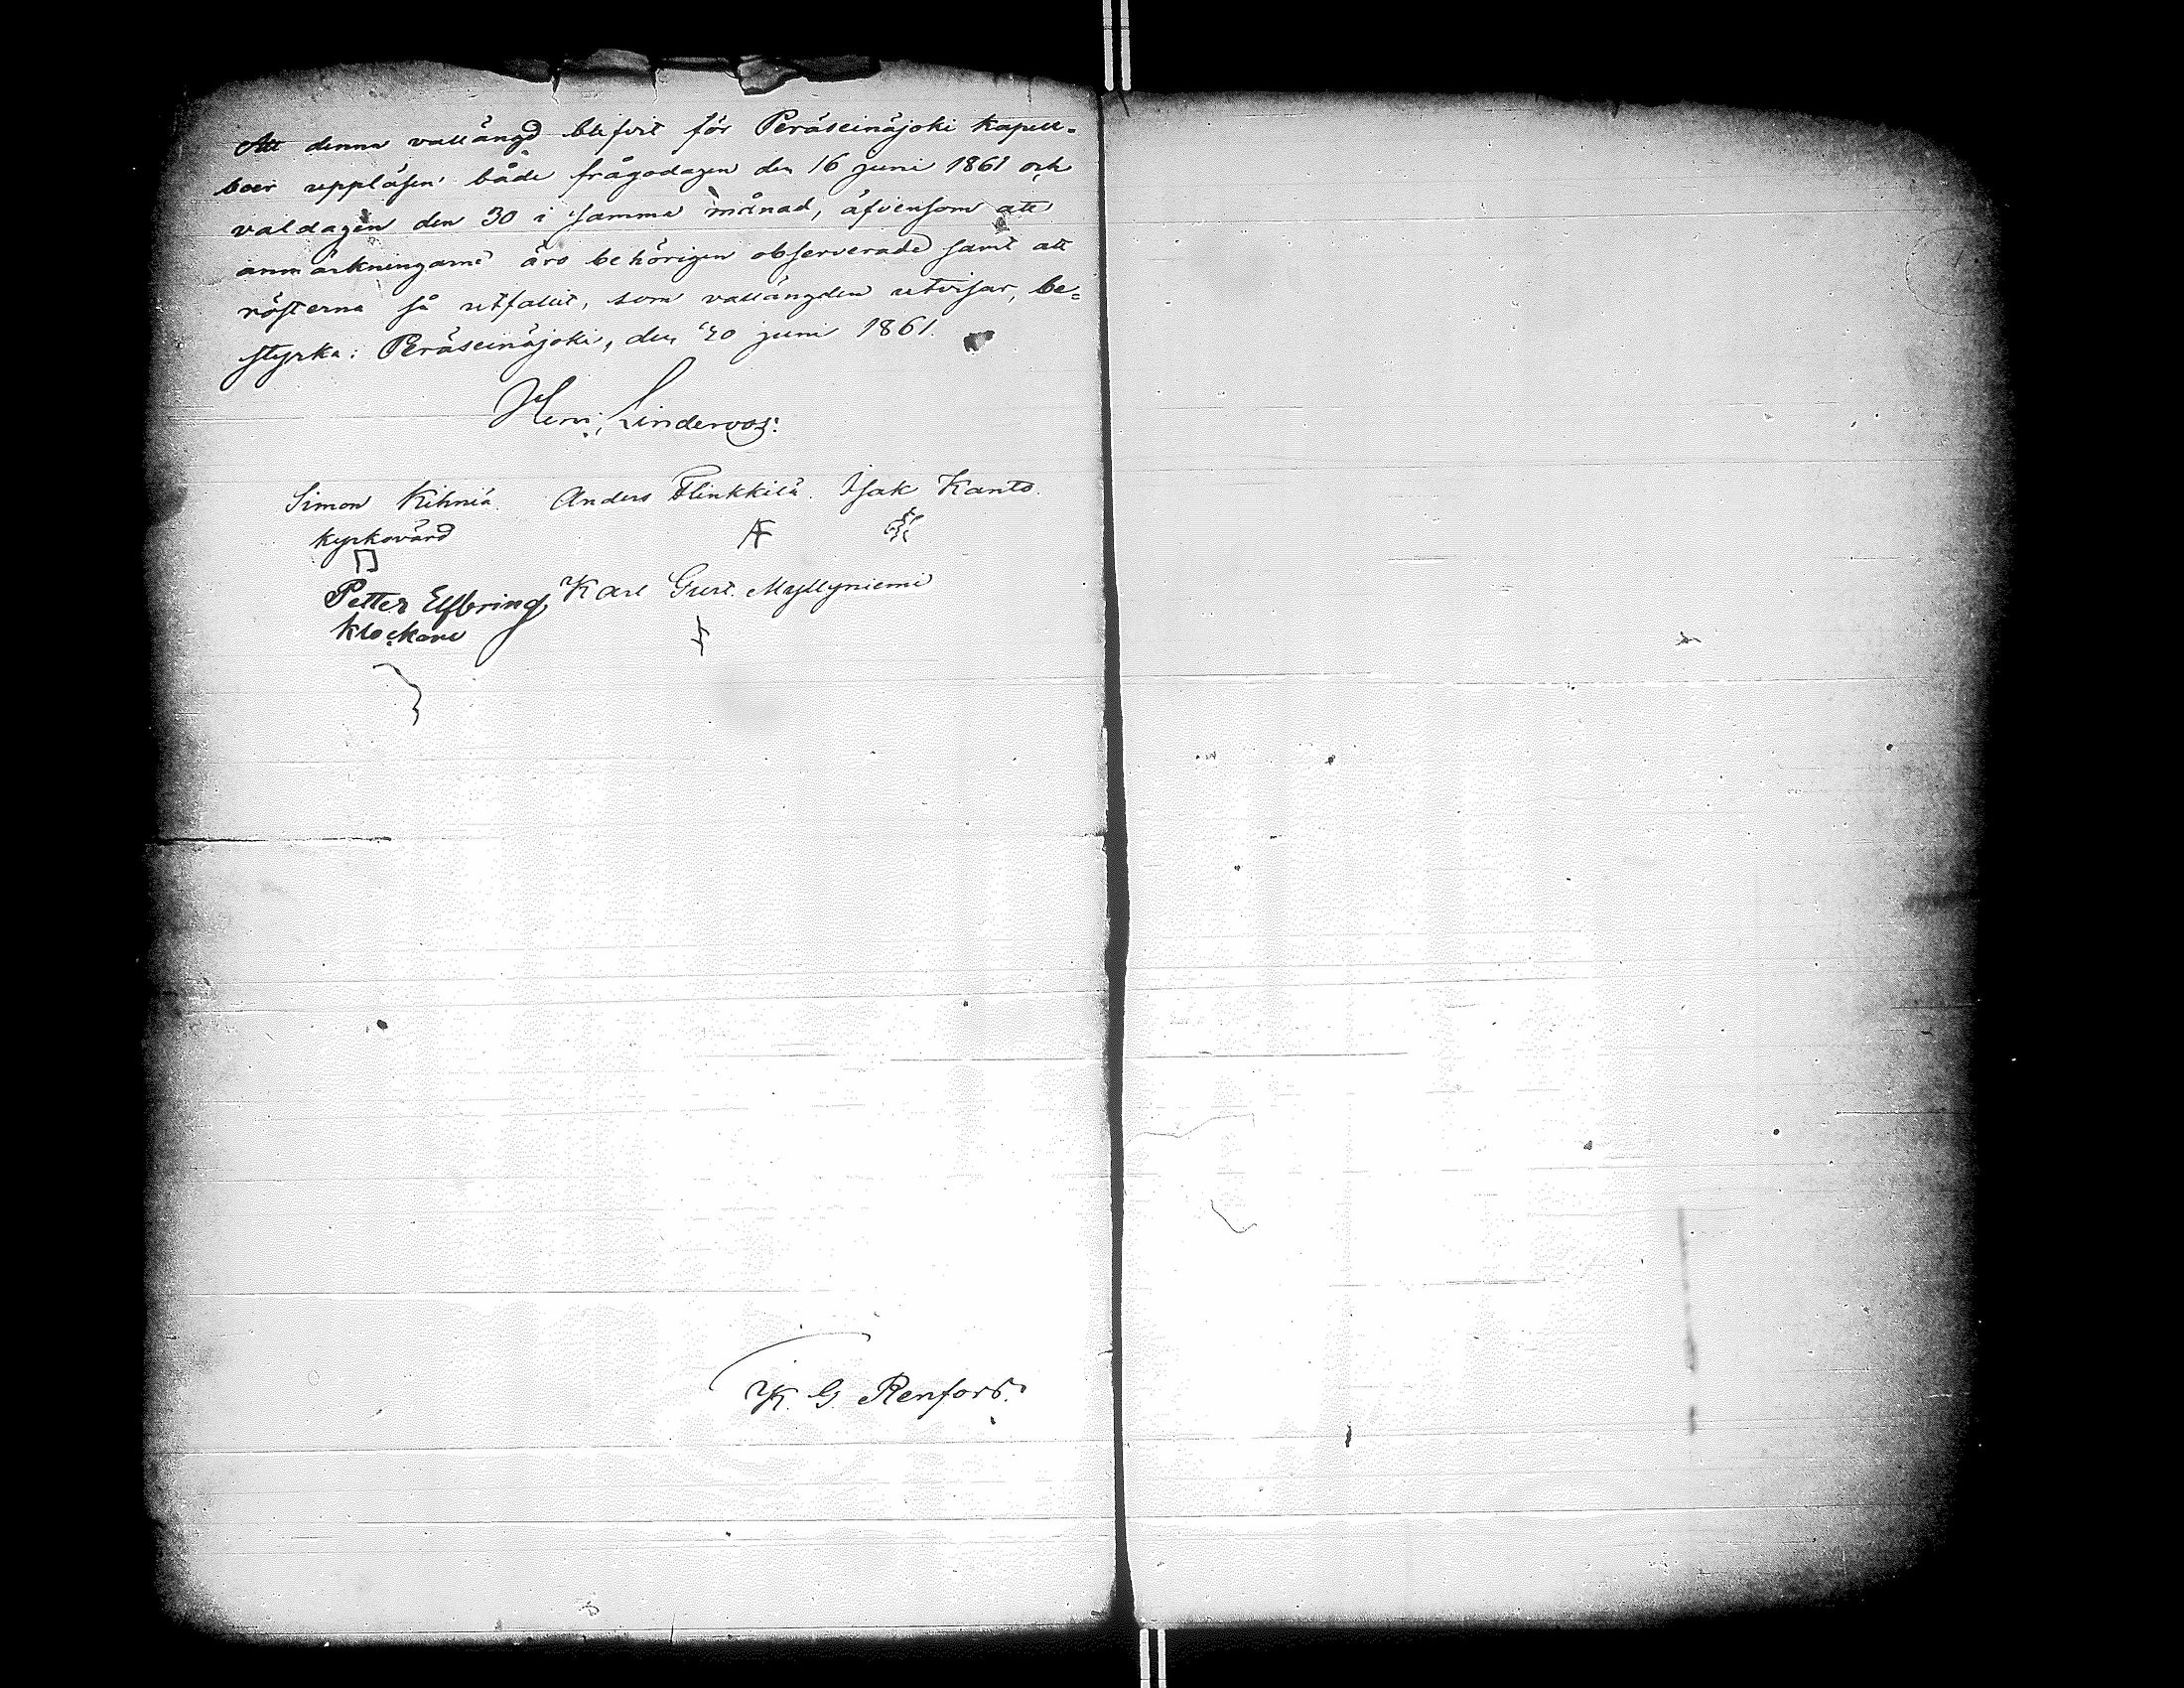 Att denna vallängd blifvit för Peräseinäjoki kapell-
boer uppläsen både frågodagen den 16 juni 1861 och
valdagen den 30 i samma månad, äfvensom att
anmärkningarne äro behörigen observerade samt att
rösterna så utfallit, som vallängden utvisar, be-
styrka; Peräseinäjoki, den 30 juni 1861.
Henr. Linderoos.
Simon Kihniä. Anders Flinkkilä. Isak Kanto.
kyrkovärd AF
Petter Elfbring Karl Gust. Myllyniemi
klockare
K. G. Renfors.